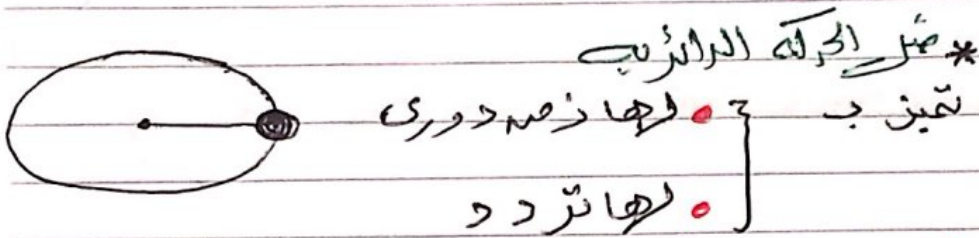 * مثل الحركة الدائرية
تميز ب • لها زمن دورى
• لها تردد